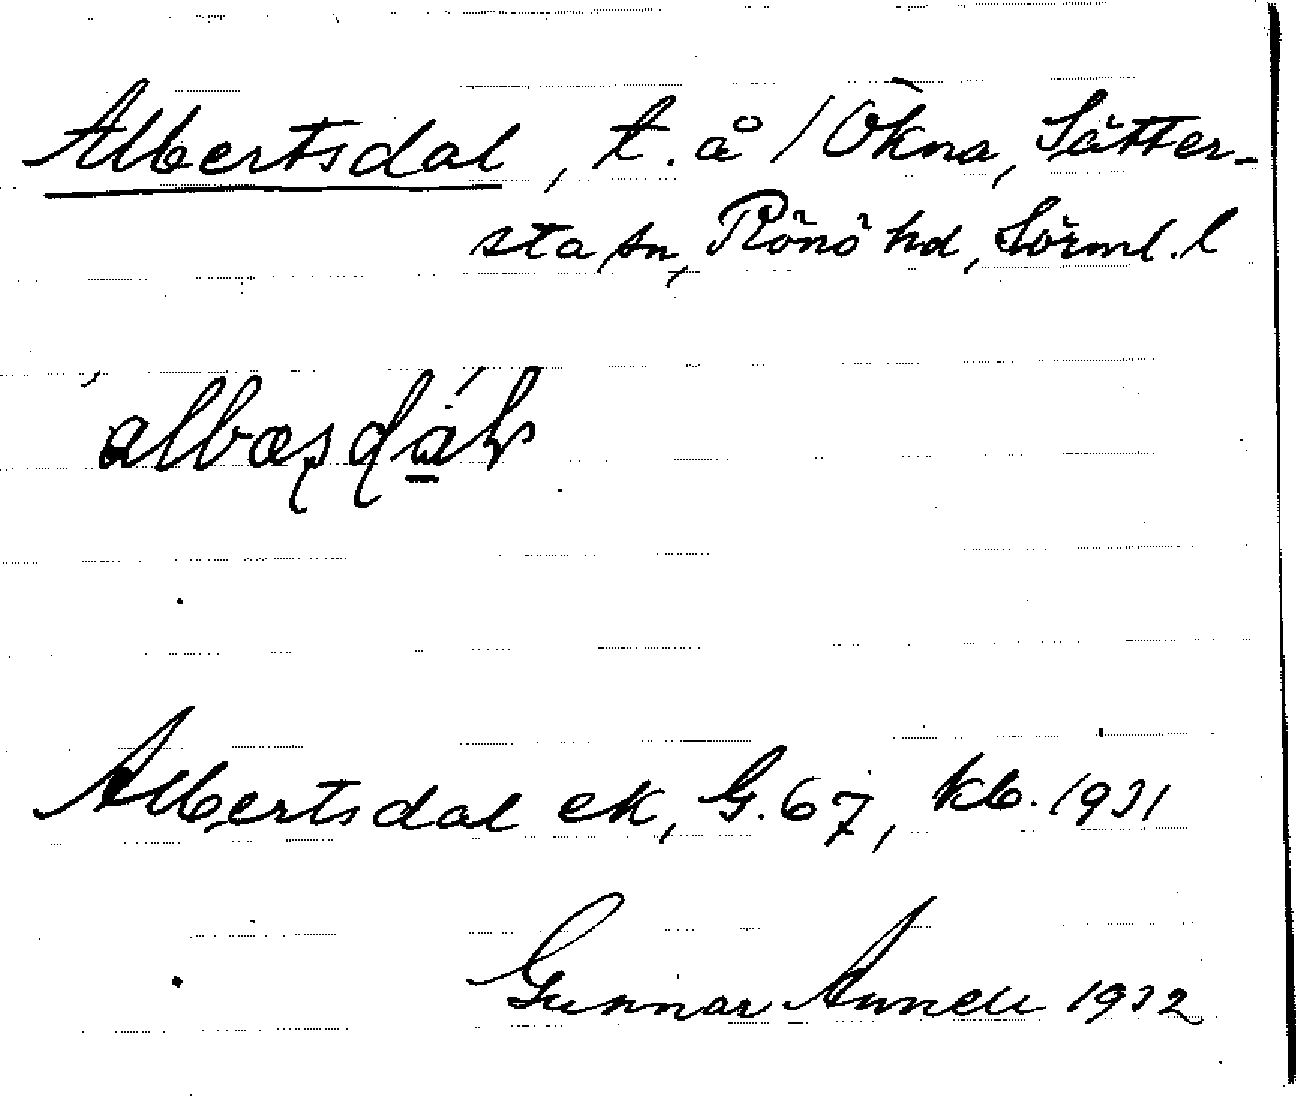 Albertsdal, t. å /Ökna, Sätter-
sta sn, Rönö hd, Sörml. l
Albertsdal ek, G. 67, kb. 1931
Gunnar Annell 1932